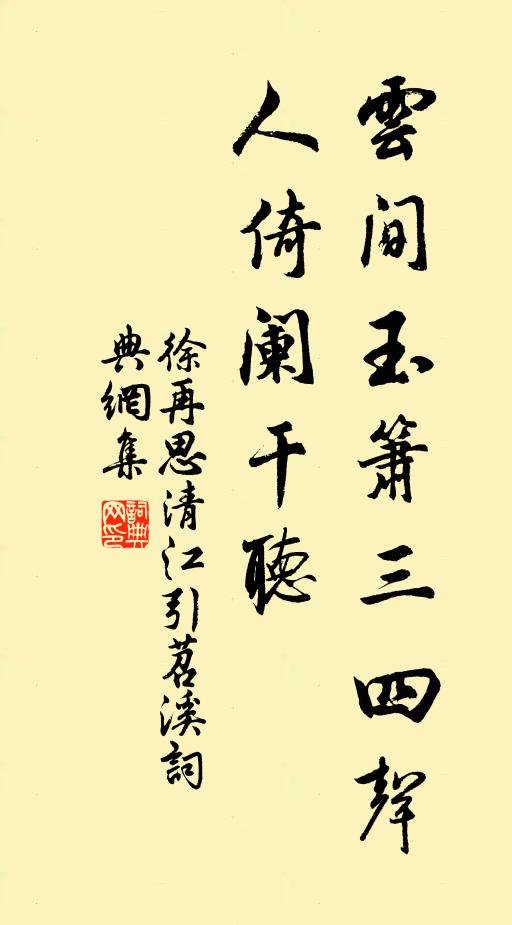 雲間玉簫三四聲
人倚闌干聽
徐再思清江引苕溪詞
典網集
詞典
网印